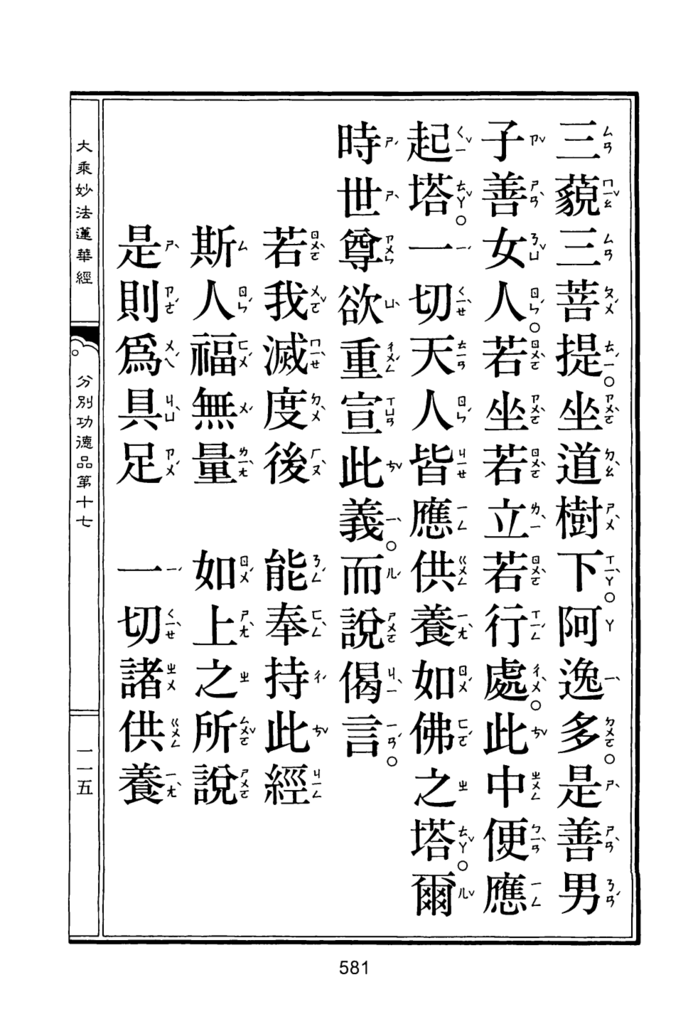 三藐三菩提。坐道樹下。阿逸多。是善男
子善女人。若坐若立若行處。此中便應
起塔。一切天人皆應供養如佛之塔。爾
時世尊欲重宣此義。而說偈言。
若我滅度後　能奉持此經
斯人福無量　如上之所說
是則爲具足　一切諸供養
大乘妙法蓮華經
分別功德品第十七
一一五
581